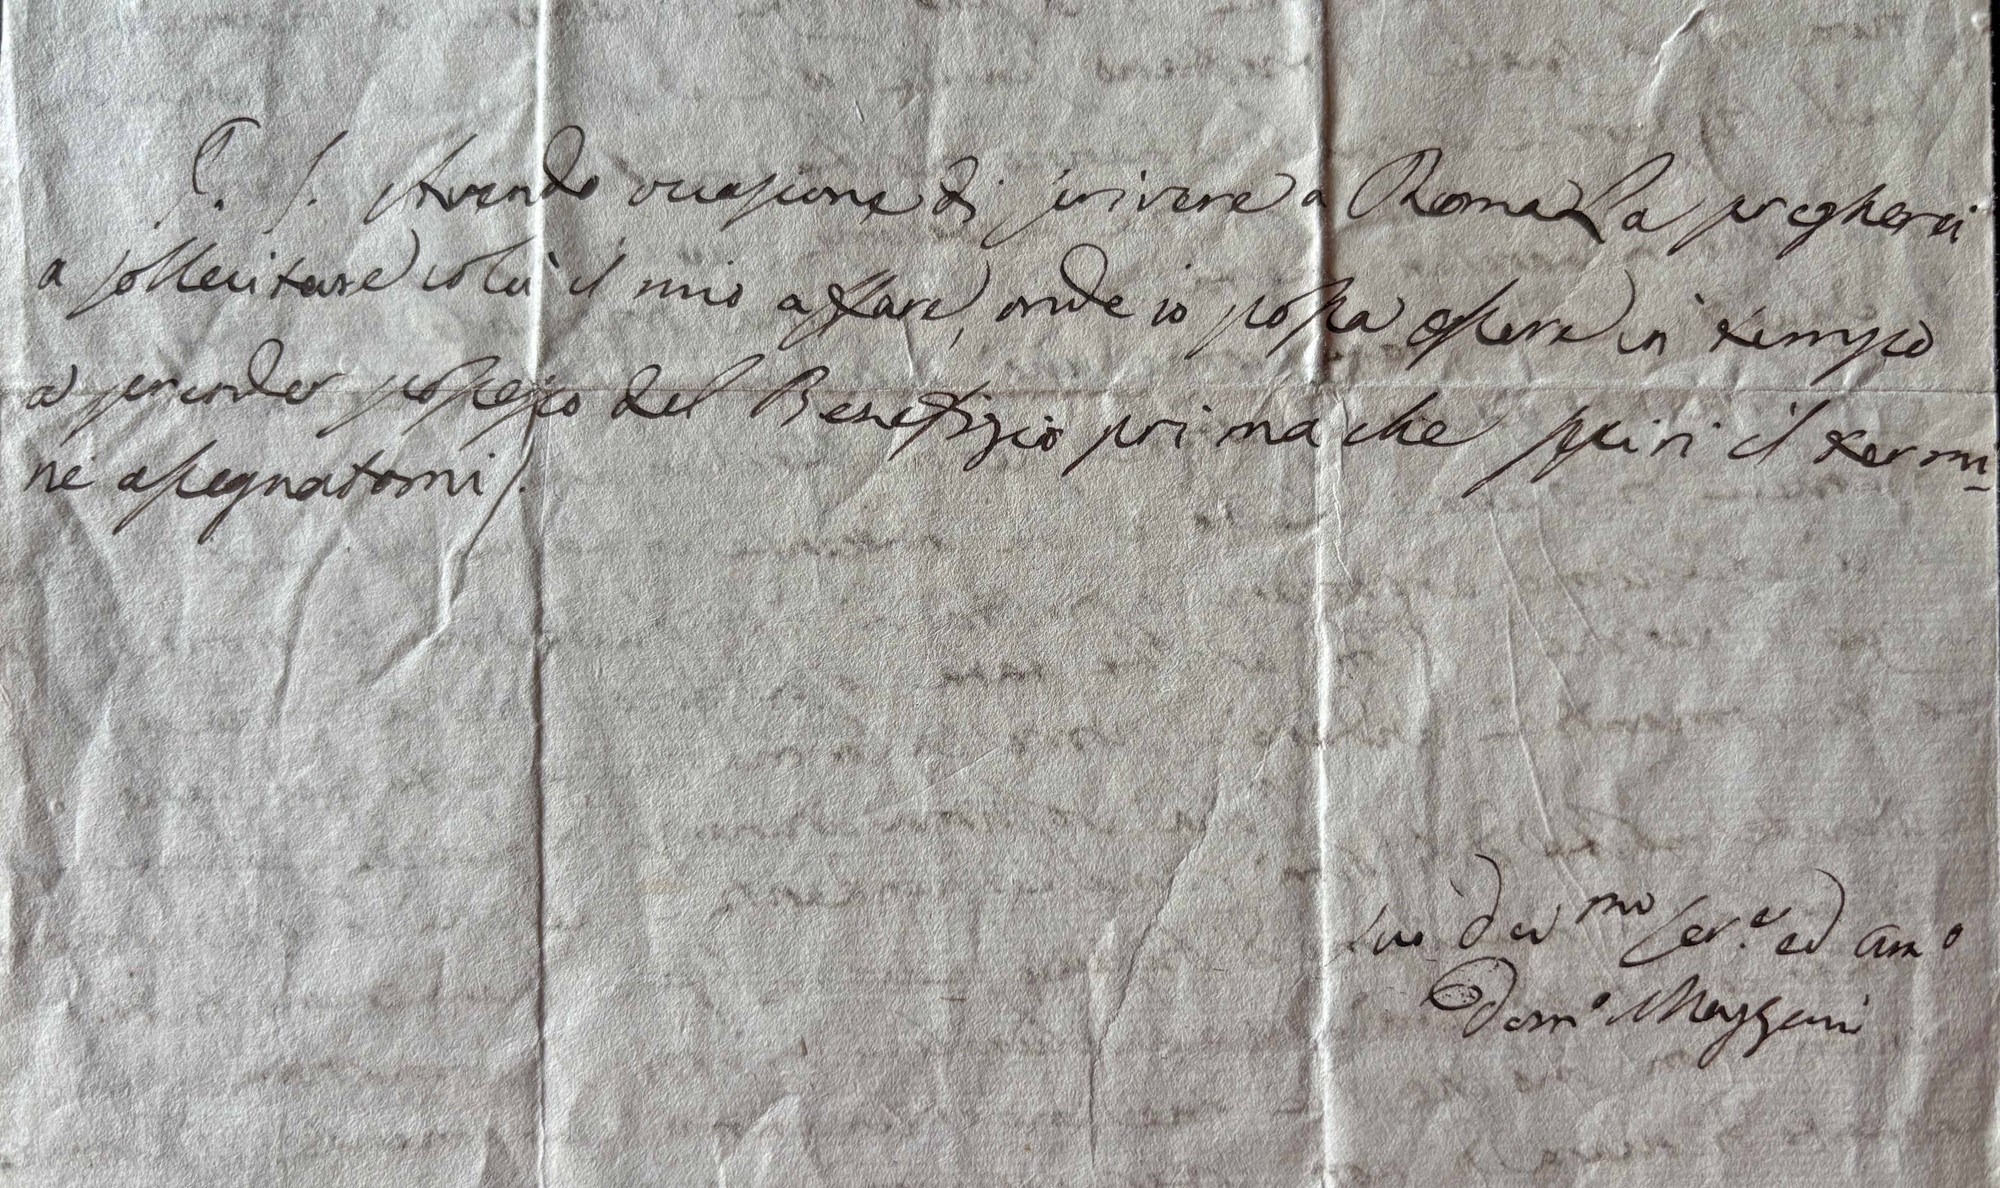 P. S. Avendo occasione di scrivere a Roma La pregherei
a sollecitare colà il mio affare, onde io possa essere in tempo
a prender possesso del Benefizio prima che spiri il termi-
ne assegnatomi.
Suo Dev.mo Ser.e ed Am.o
Dom.o